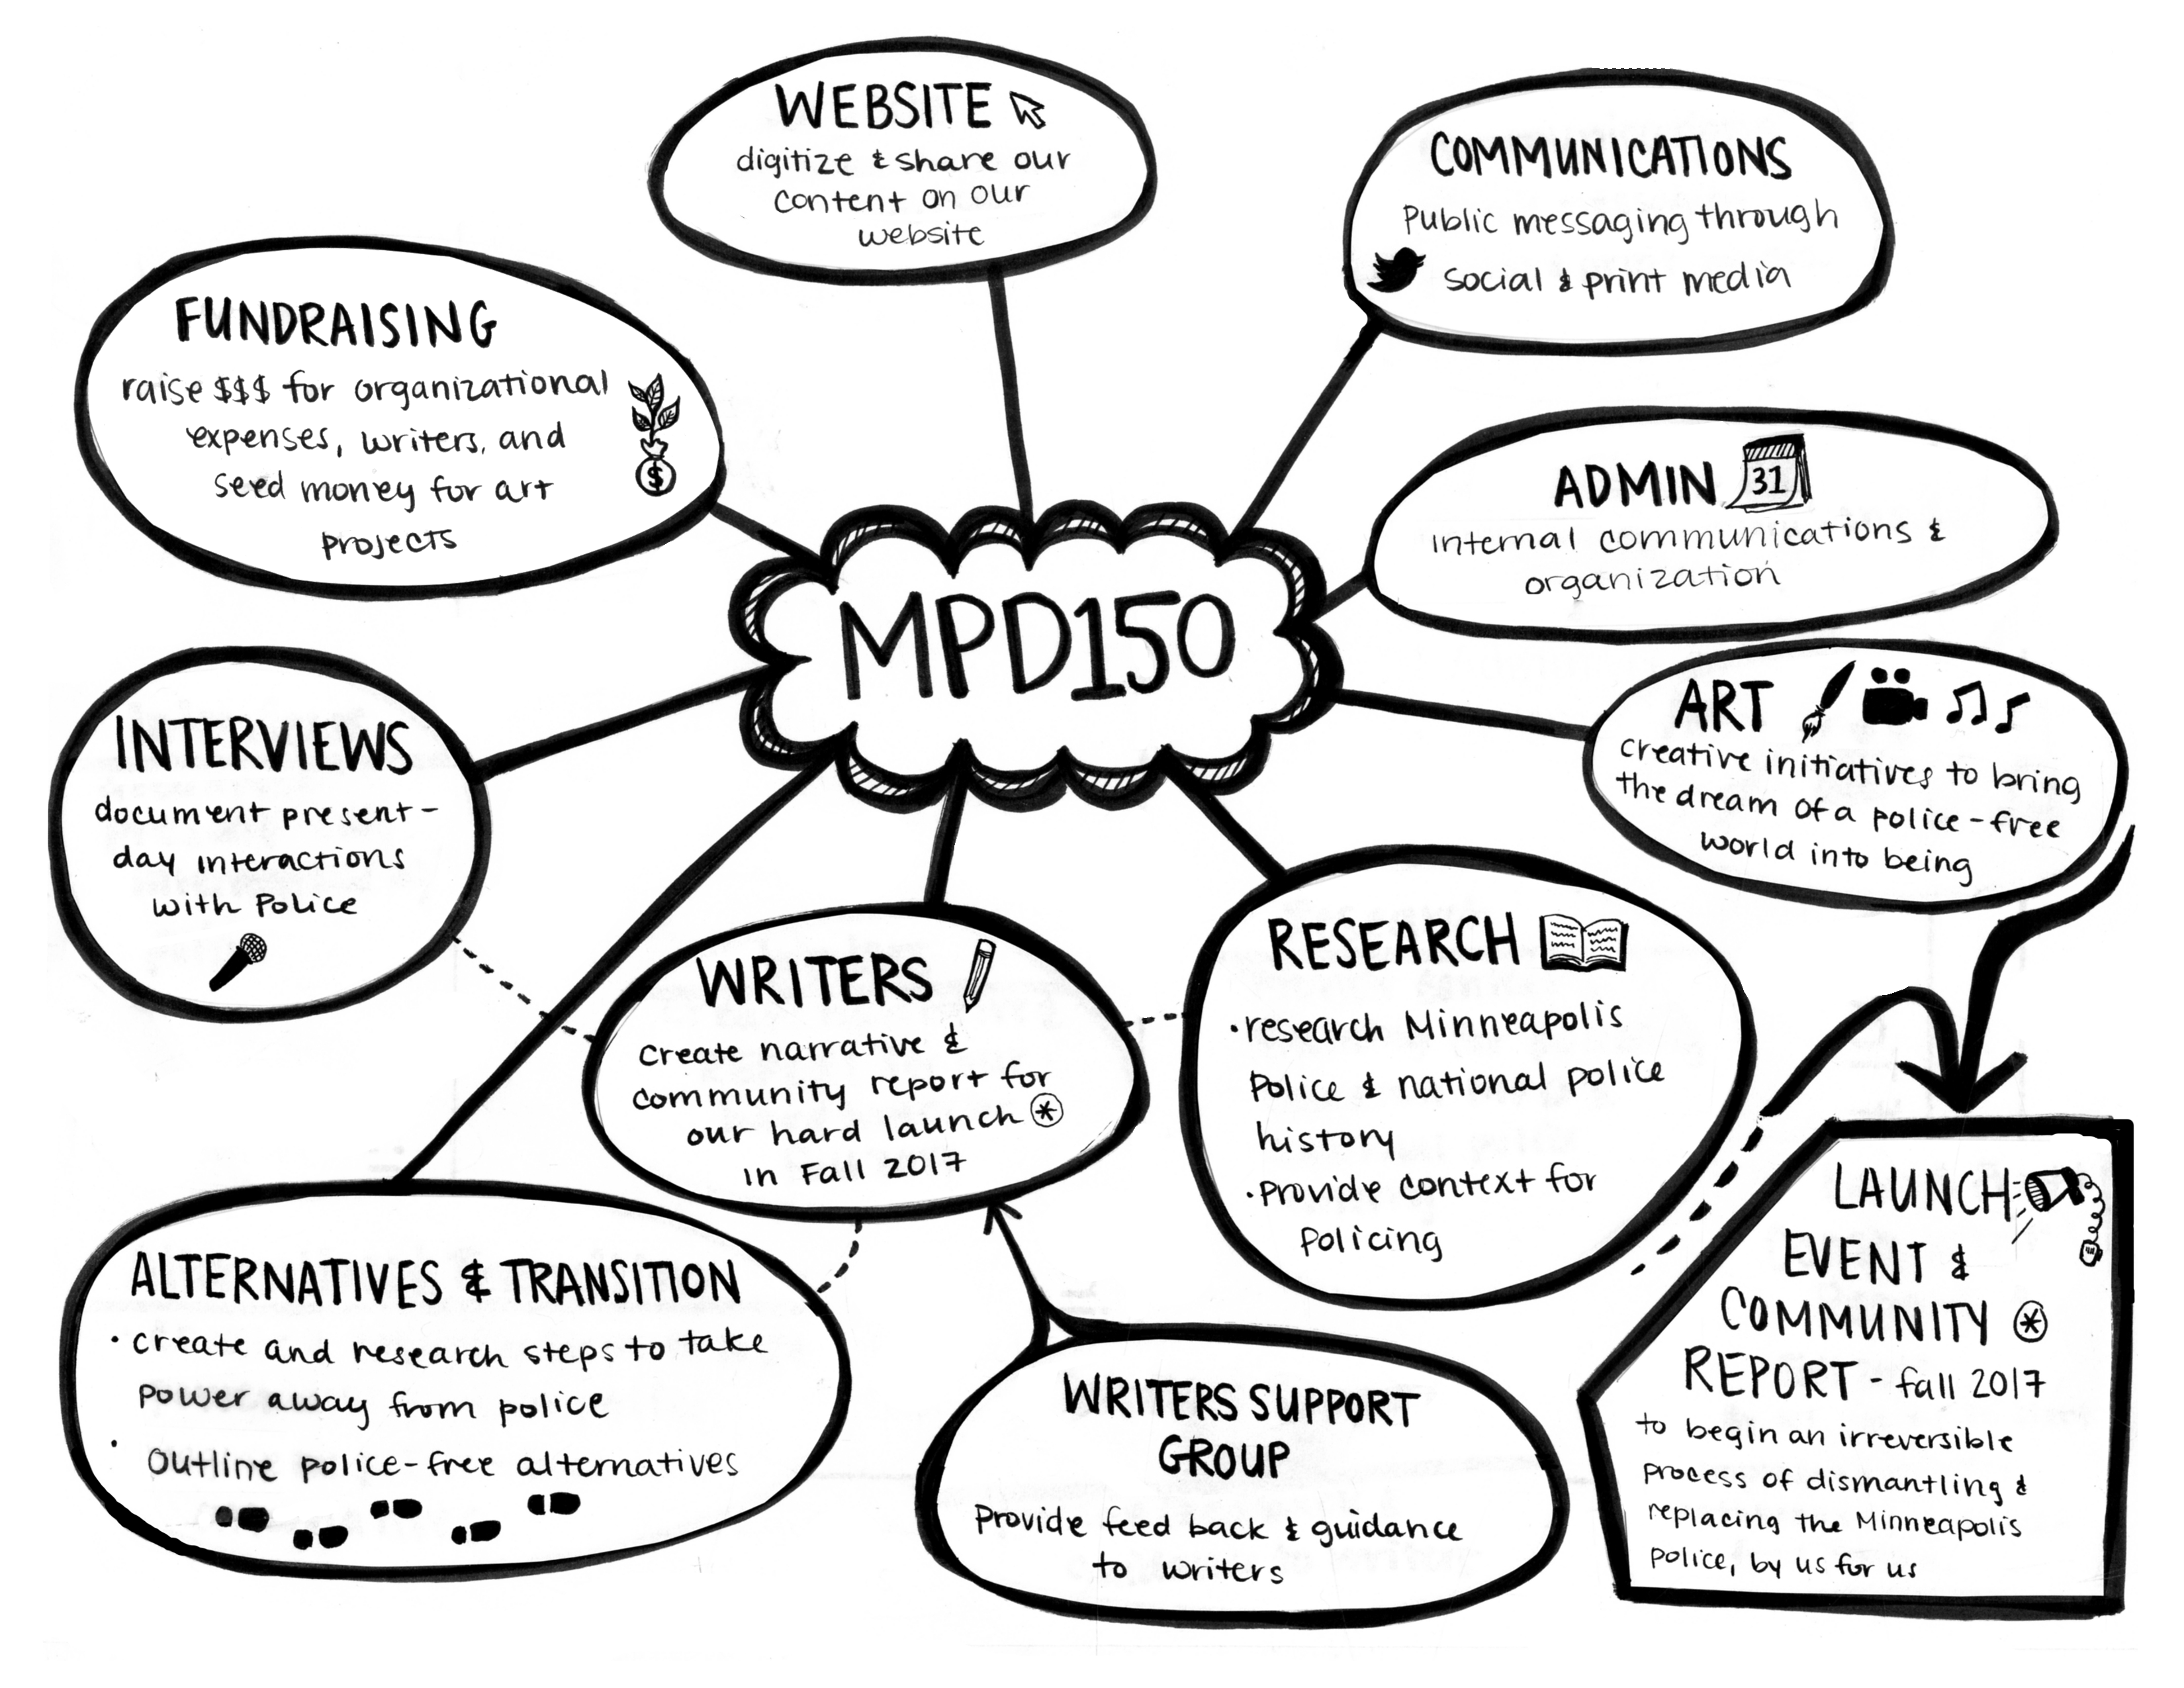 WEBSITE
digitize & share our
content on our
website
COMMUNICATIONS
Public messaging through
social & print media
FUNDRAISING
raise $$$ for organizational
expenses, writers, and
seed money for art
projects
ADMIN 31
internal communications &
organization
MPD150
ART
creative initiatives to bring
the dream of a police-free
world into being
INTERVIEWS
document present-
day interactions
with Police
WRITERS
create narrative &
community report for
our hard launch *
in Fall 2017
RESEARCH
• research Minneapolis
Police & national police
history
• Provide context for
Policing
ALTERNATIVES & TRANSITION
• create and research steps to take
power away from police
• Outline police-free alternatives
WRITERS SUPPORT
GROUP
Provide feed back & guidance
to writers
LAUNCH
EVENT &
COMMUNITY *
REPORT - fall 2017
to begin an irreversible
process of dismantling &
replacing the Minneapolis
Police, by us for us